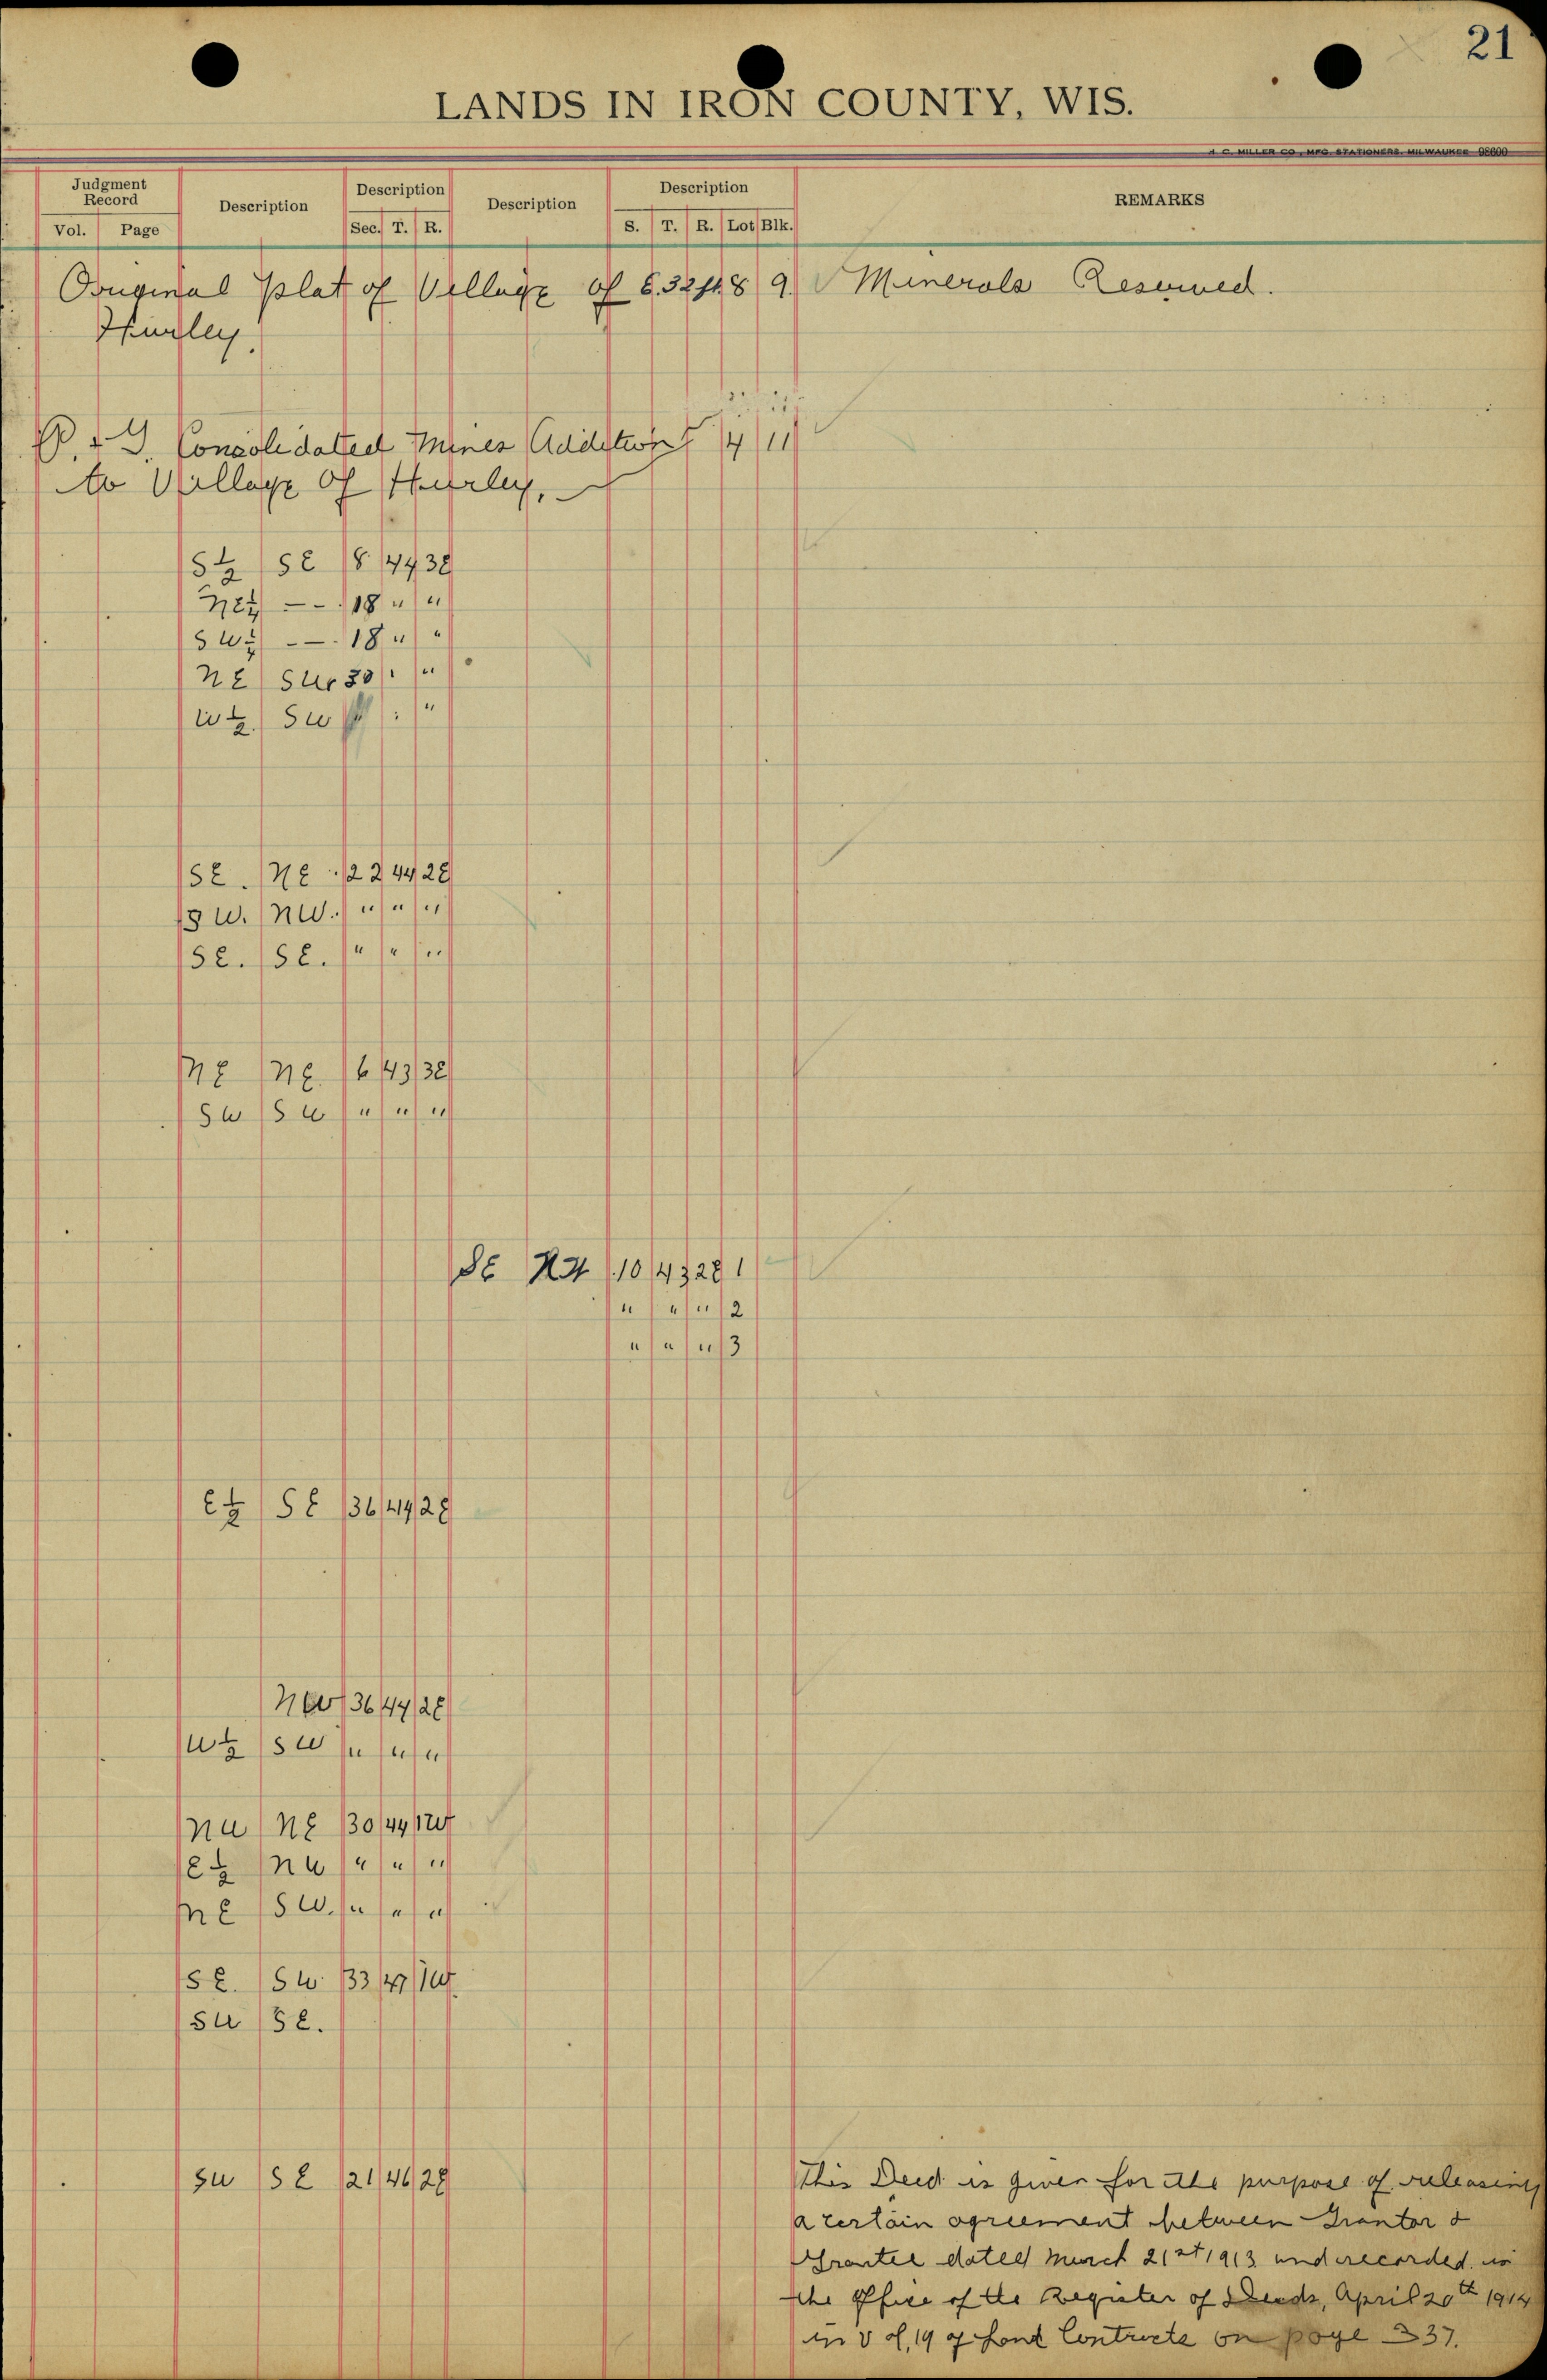 21
LANDS IN IRON COUNTY, WIS.
H. C. MILLER CO., MFG. STATIONERS, MILWAUKEE 98600
Judgment Record Description Description Description Description REMARKS
Vol. Page Sec. T. R. S. T. R. Lot Blk.
Original Plat of Village of 8 9. Minerals Reserved.
Hurley.
Consolidated Mines Addition 4 11
to Village of Hurley.
S ½ SE 8 44 3E
NE¼ — - 18 " "
SW¼ - — 18 " "
NE SW 30 " "
W ½ SW " "
SE. NE 22 44 2E
SW. NW. " " "
SE. SE. " " "
NE NE 6 43 3E
SW SW " " "
SE NW 10 43 2E 1
" " " 2
" " " 3
E ½ SE 36 44 2E
NW 36 44 2E
W ½ SW " " "
NW NE 30 44 1W
E ½ NW " " "
NE SW. " " "
SE. SW 33 47 1W
SW SE.
SW SE 21 46 2E
This Deed is given for the purpose of releasing
a certain agreement between Grantor &
Grantee dated March 21st 1913 and recorded in
the office of the Register of Deeds, April 20th 1914
in Vol, 19 of Land Contracts on page 337.